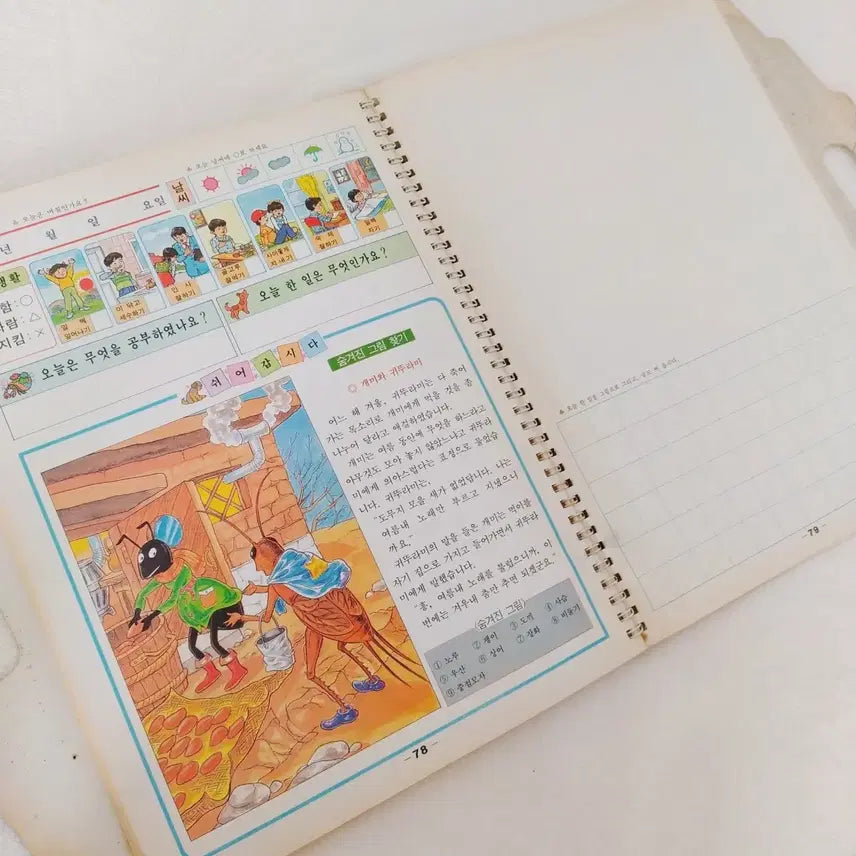 ※ 오늘은 며칠인가요?
※ 오늘 날씨에 ○표 하세요
년 월 일 요일
날씨
생활
함: ○
사람: △
지킴: ×
일찍 일어나기
이 닦고 세수하기
인사 잘하기
골고루 먹기
사이좋게 지내기
숙제 잘하기
일찍 자기
오늘은 무엇을 공부하였나요?
오늘 한 일은 무엇인가요?
쉬어갑시다
숨겨진 그림 찾기
◎ 개미와 귀뚜라미
어느 해 겨울, 귀뚜라미는 다 죽어
가는 목소리로 개미에게 먹을 것을 좀
나누어 달라고 애걸하였습니다.
개미는 여름 동안에 무엇을 하느라고
아무것도 모아 놓지 않았느냐고 귀뚜라
미에게 의아스럽다는 표정으로 물었습
니다. 귀뚜라미는,
"도무지 모을 새가 없었답니다. 나는
여름내 노래만 부르고 지냈으니
까요."
귀뚜라미의 말을 들은 개미는 먹이를
자기 집으로 가지고 들어가면서 귀뚜라
미에게 말했습니다.
"흥, 여름내 노래를 불렀으니까, 이
번에는 겨우내 춤만 추면 되겠군요."
(숨겨진 그림)
① 노루 ② 잉어 ③ 도끼 ④ 사슴
⑤ 우산 ⑥ 상어 ⑦ 장화 ⑧ 비둘기
⑨ 중절모자
－78－
※ 오늘 한 일을 그림으로 그리고, 글도 써 봅시다.
－79－